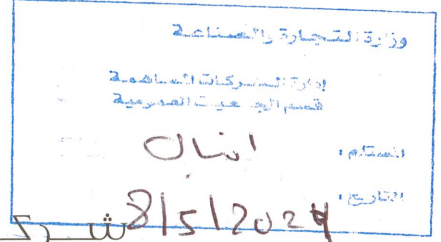 وزارة التجارة والصناعة
إدارة الشركات المساهمة
قسم الجمعيات العمومية
المستلم :
التاريخ : 8/5/2024